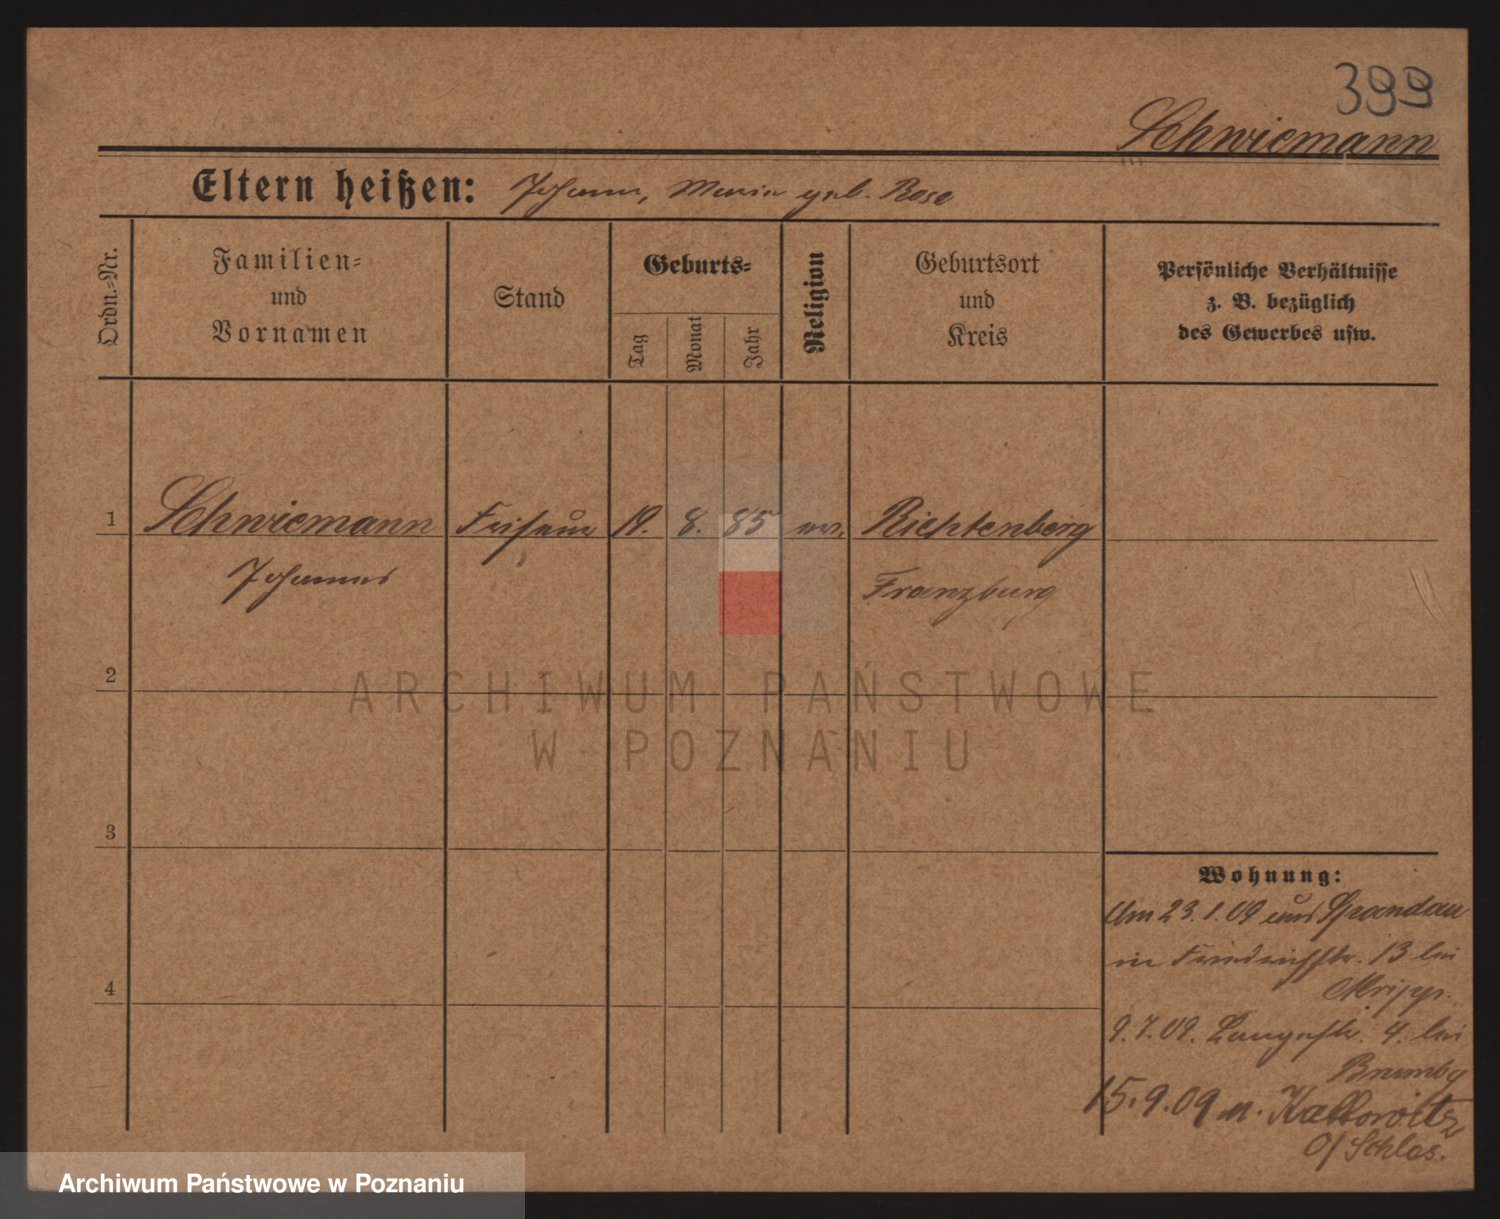 399
Schwiemann
Eltern heißen: Johann, Maria geb. Rose
Ordn.-Nr.
Familien-
und
Vornamen
Stand
Geburts-
Tag
Monat
Jahr
Religion
Geburtsort
und
Kreis
Persönliche Verhältnisse
z. B. bezüglich
des Gewerbes usw.
1 Schwiemann Friseur 19. 8. 85 ev. Richtenberg
Johannes Franzburg
2
ARCHIWUM PAŃSTWOWE
W POZNANIU
3
Wohnung:
Am 23.1.09 aus Spandau
in Friedrichstr. 13 bei
4
9.7.09. Langestr. 4. bei
Brumby
15.9.09 n. Kattowitz
O/Schles.
Archiwum Państwowe w Poznaniu